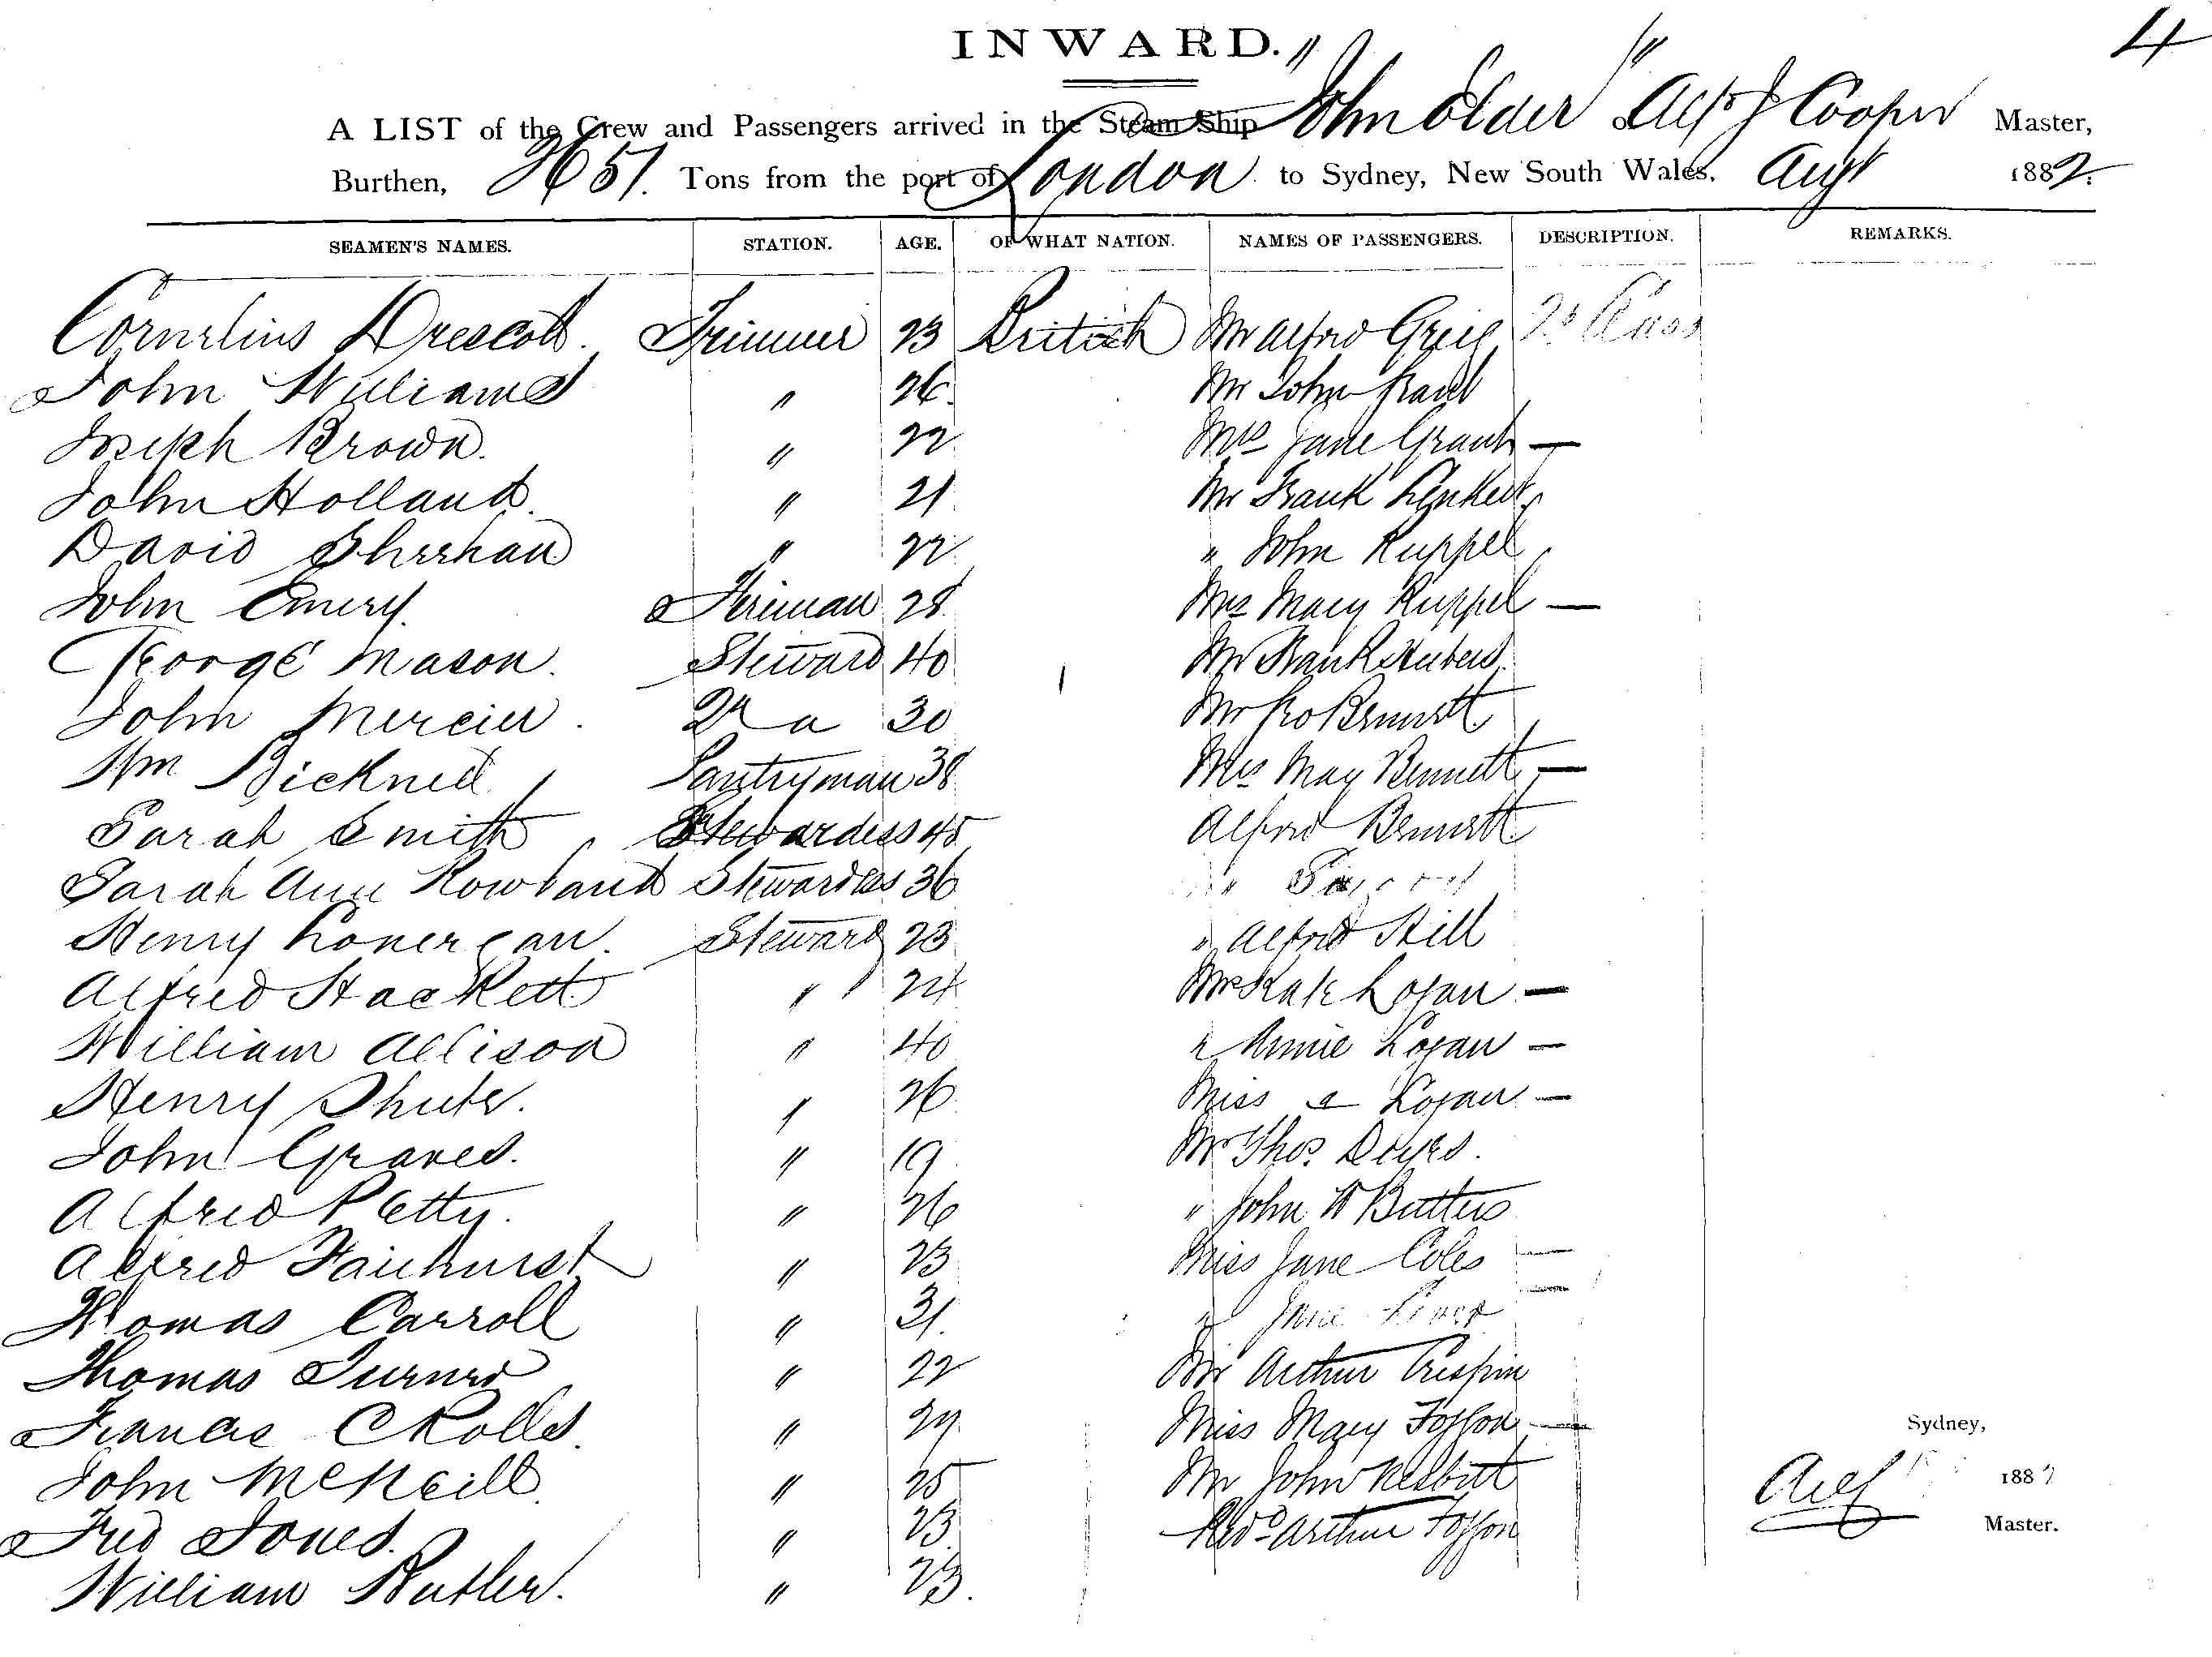 4
INWARD.
A LIST of the Crew and Passengers arrived in the Steam Ship "John Elder" of Alf J Cooper Master,
Burthen, 2651. Tons from the port of London to Sydney, New South Wales, Augt 1882.
SEAMEN'S NAMES. STATION. AGE. OF WHAT NATION. NAMES OF PASSENGERS. DESCRIPTION. REMARKS.
Cornelius Drescott. Trimmer 23 British Mr Alfred Grieg 2d Class
John Williams " 26 Mr John
Joseph Brown. " 22 Mrs Jane Grant —
John Holland. " 21 Mr Frank
David Sheehan " 22 " John Ruppel
John Emery. Fireman 28 Mrs Mary Ruppel —
George Mason. Steward 40 Mr Frank
John Mercier. 2nd " 30 Mr Bennett
Wm Bicknell Pantryman 38 Mrs May Bennett —
Sarah Smith Stewardess 45 Alfred Bennett
Sarah Ann Rowland Stewardess 36 "
Henry Lonergan. Steward 23 " Alfred Hill
Alfred Hackett " 24 Mrs Kate Logan —
William Allison " 40 " Annie Logan —
Henry Shute. " 26 Miss a Logan —
John Graves. " 19 Mr Thos
Alfred Petty. " 26 " John W Butters
Alfred Fairhurst " 23 Miss Jane Coles —
Thomas Carroll " 31. " —
Thomas Turner " 22 Mr Arthur Crispin
Francis C Rolls. " 29 Miss Mary Fosson —
Sydney,
John McNeill. " 25 Mr John Nesbitt
188
Fred Jones. " 23 Revd Arthur Fosson
Master.
William Butler. " 23.